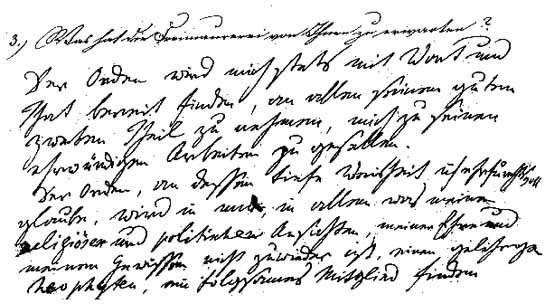 3.) Was hat die Freimaurerei von Ihnen zu erwarten?
Der Orden wird mich stets mit Wort und
That bereit finden, an allen seinen guten
Zwecken Theil zu nehmen, mich zu seinen
ehrwürdigen Arbeiten zu gesellen.
Der Orden, an dessen tiefe Weisheit ich
glaube, wird in mir, in allem was meinen
religiösen und politischen Ansichten, meiner Ehre und
meinem Gewissen nicht zuwider ist, einen
Neophyten, ein folgsames Mitglied finden